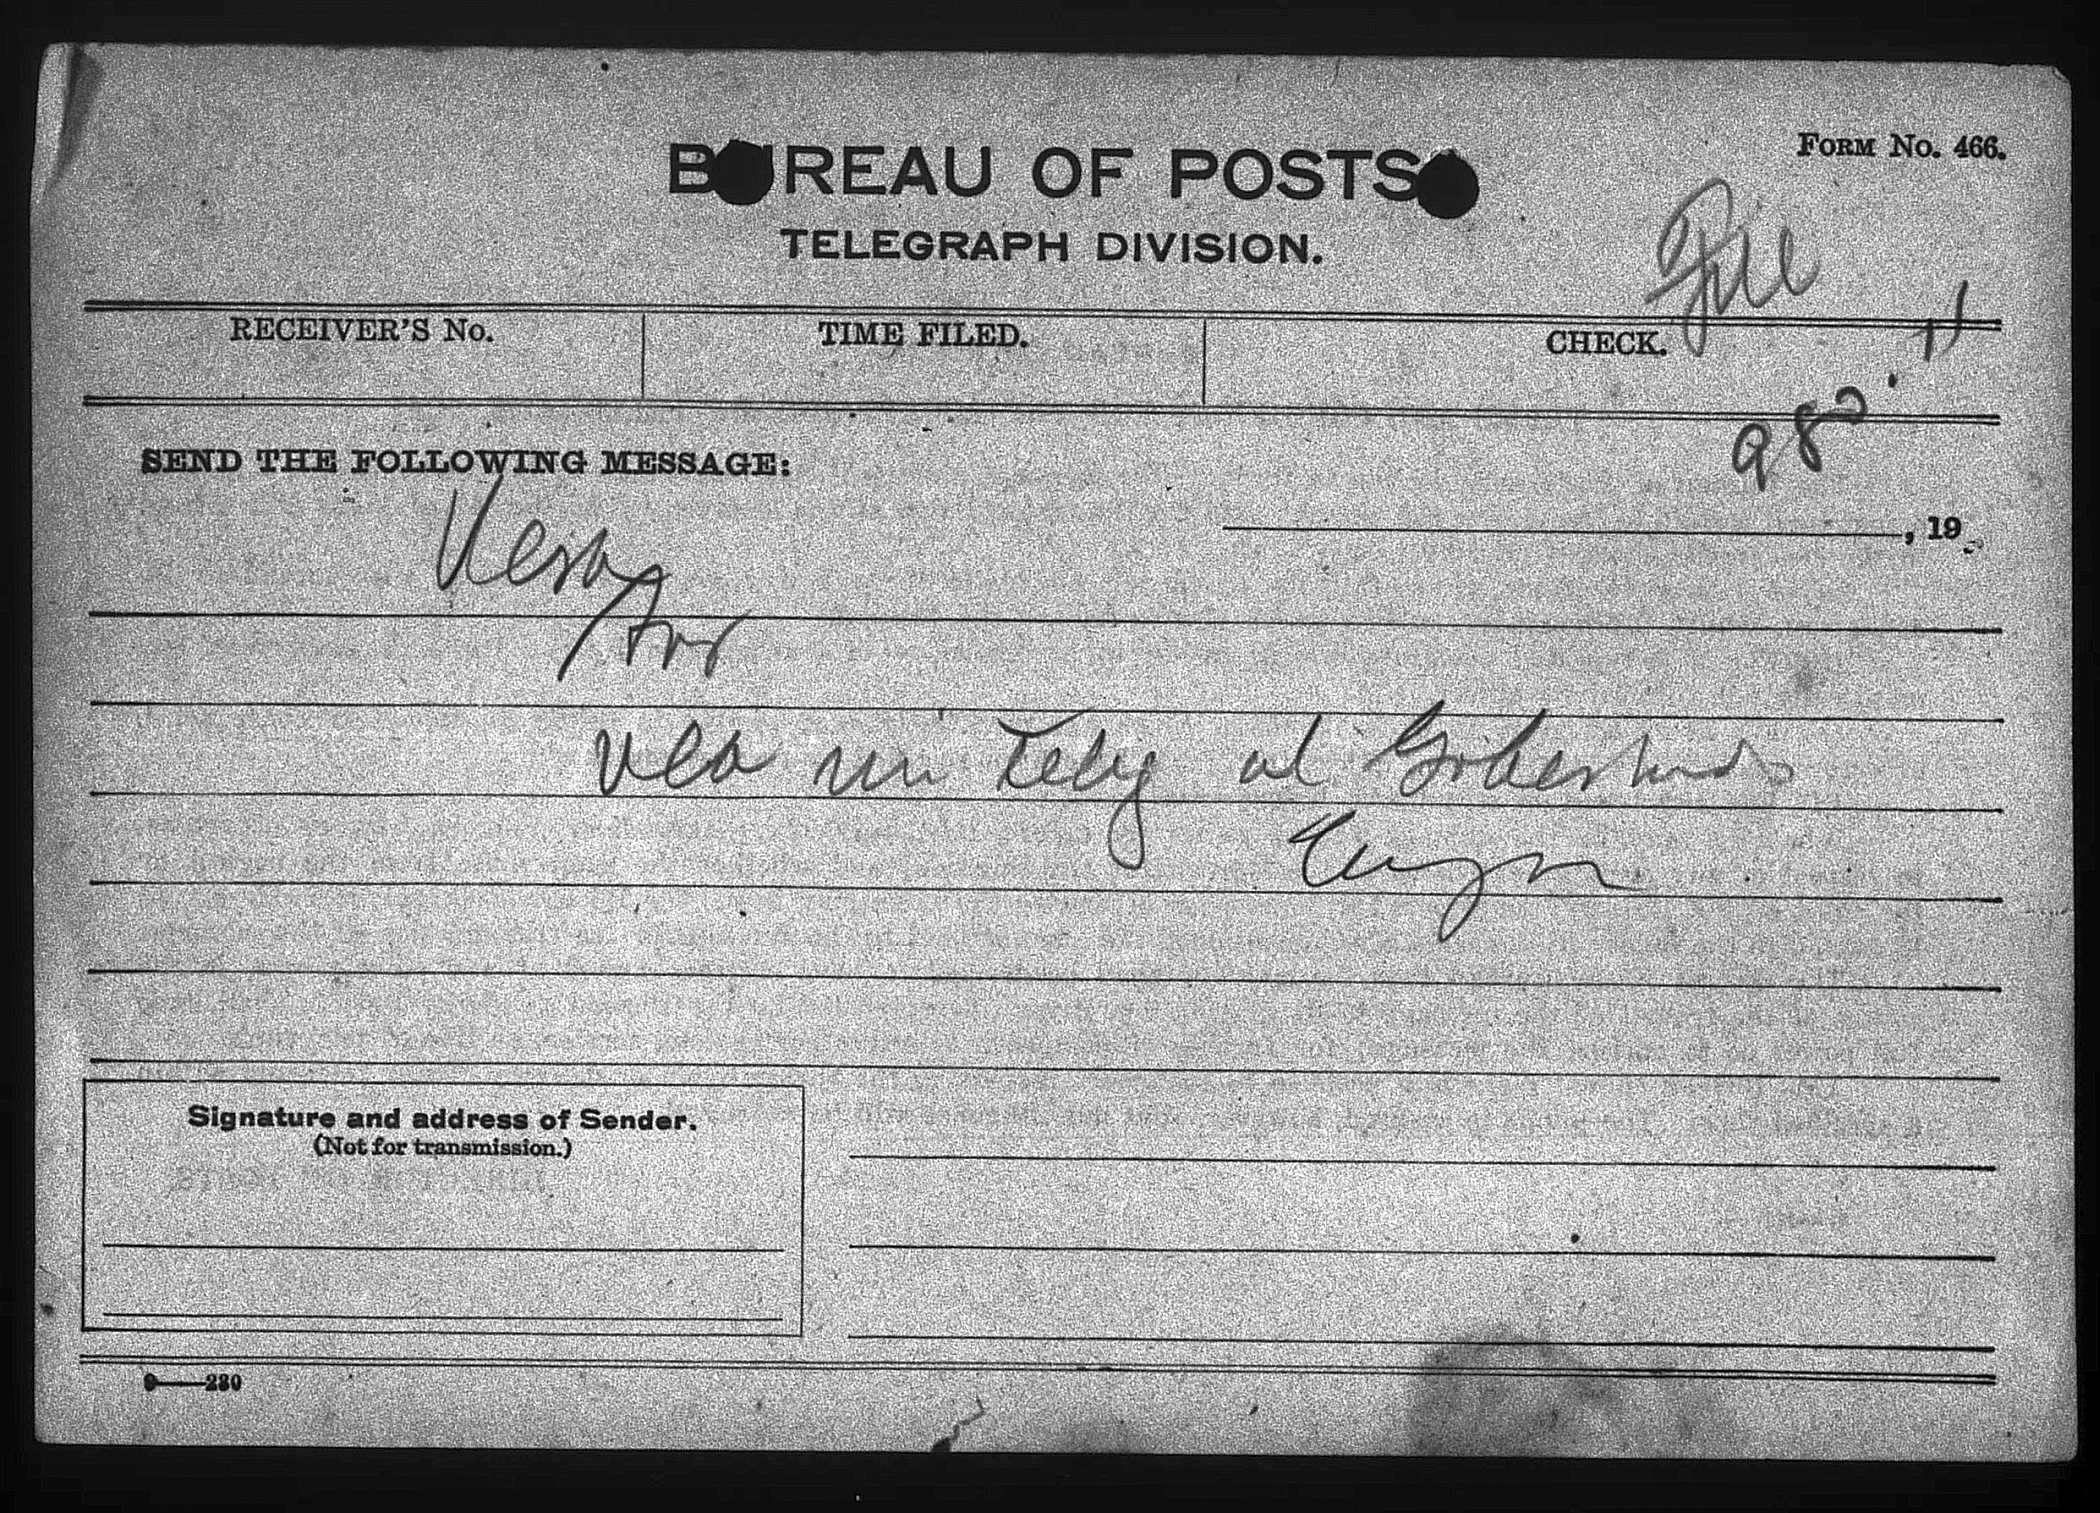 FORM No. 466.
BUREAU OF POSTS
TELEGRAPH DIVISION.
File
RECEIVER'S No.
TIME FILED.
CHECK.
980
SEND THE FOLLOWING MESSAGE:
, 19
Vea mi Teleg al
Signature and address of Sender.
(Not for transmission.)
9——230